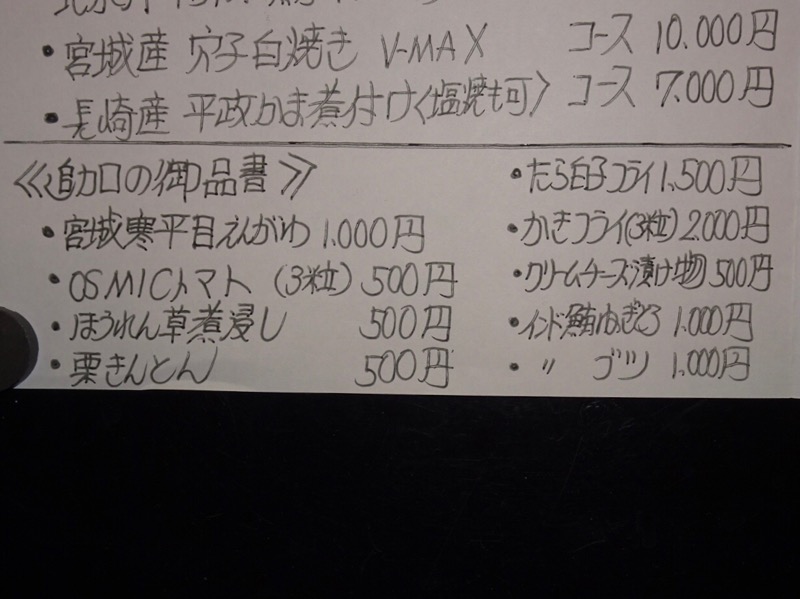 ・宮城産 穴子白焼き V-MAX コース 10.000円
・長崎産 平政かま煮付け〈塩焼も可〉 コース 7.000円
≪追加の御品書≫
・宮城寒平目えんがわ 1.000円
・OSMICトマト (3粒) 500円
・ほうれん草煮浸し 500円
・栗きんとん 500円
・たら白子フライ 1,500円
・かきフライ(3粒) 2.000円
・クリームチーズ漬け物 500円
・インド鮪ねぎとろ 1.000円
・〃 ブツ 1.000円